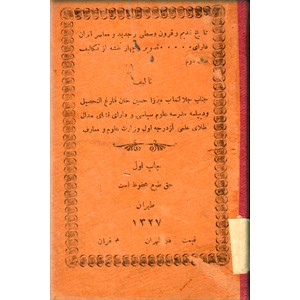 تاریخ قدیم و قرون وسطی و جدید و معاصر ایران
دارای ۰۰۰۰۰ تصویر و چهار نقشه از
تألیف
جناب جلالتمآب میرزا حسین خان فارغ التحصیل
و دیپلمه مدرسه علوم سیاسی و دارای مدال
طلای علمی از درجه اول وزارت علوم و معارف
چاپ اول
حق طبع محفوظ است
طهران
۱۳۲۷
قیمت طهران قران